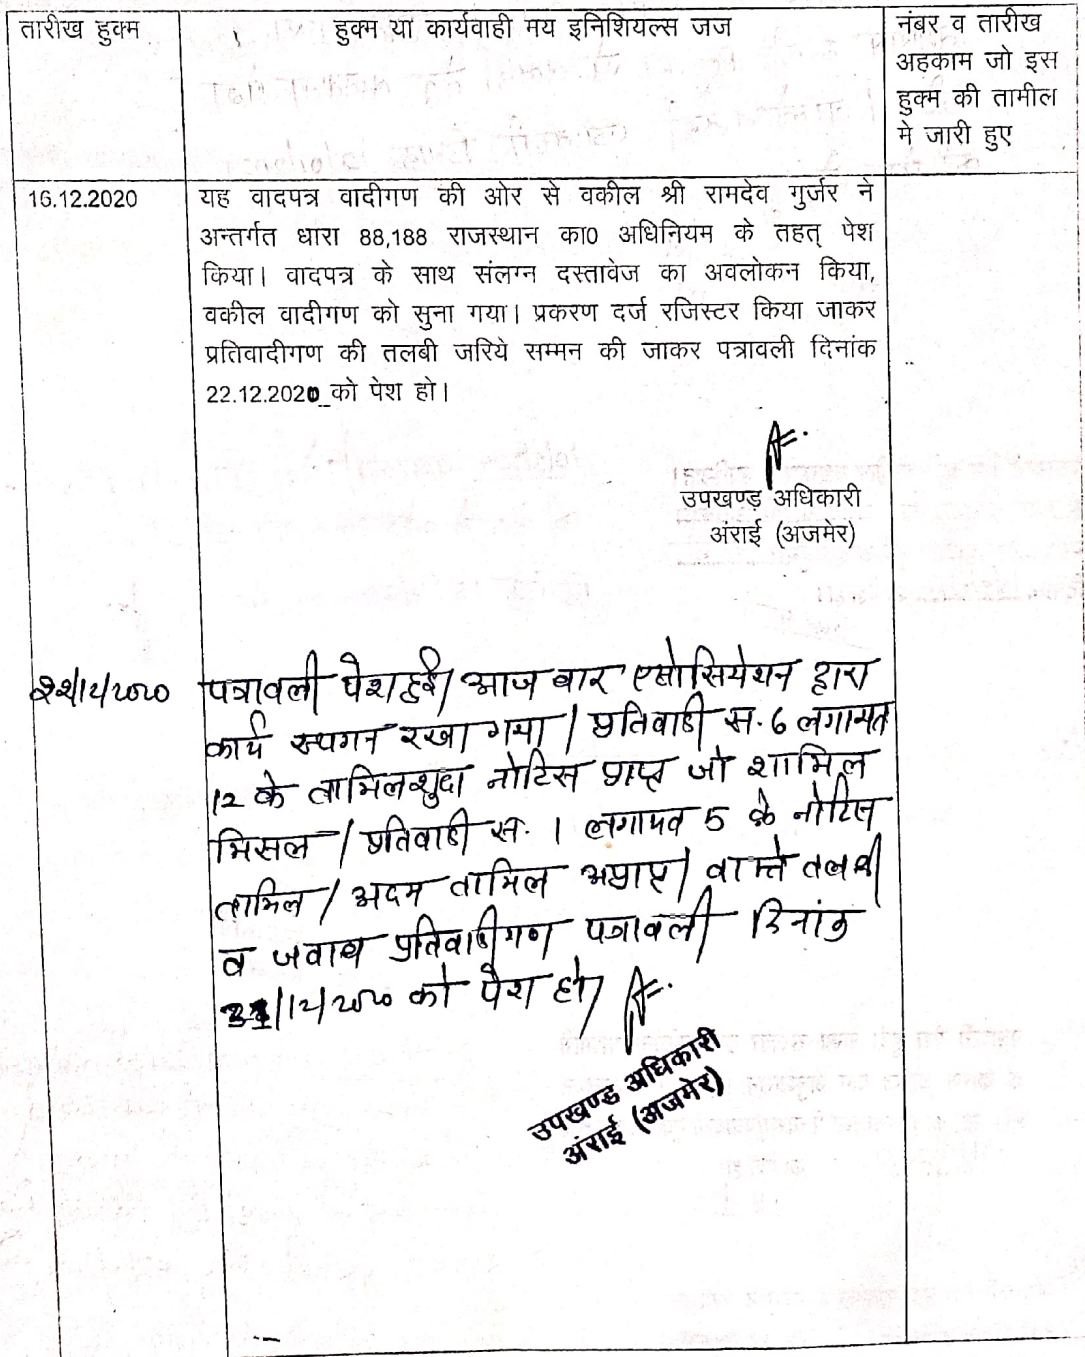 तारीख हुक्म
हुक्म या कार्यवाही मय इनिशियल्स जज
नंबर व तारीख
अहकाम जो इस
हुक्म की तामील
मे जारी हुए
16.12.2020
यह वादपत्र वादीगण की ओर से वकील श्री रामदेव गुर्जर ने
अन्तर्गत धारा 88,188 राजस्थान का0 अधिनियम के तहत् पेश
किया। वादपत्र के साथ संलग्न दस्तावेज का अवलोकन किया,
वकील वादीगण को सुना गया। प्रकरण दर्ज रजिस्टर किया जाकर
प्रतिवादीगण की तलबी जरिये सम्मन की जाकर पत्रावली दिनांक
22.12.2020 को पेश हो।
उपखण्ड़ अधिकारी
अंराई (अजमेर)
22/12/2020
पत्रावली पेश हुई। आज बार एसोसियेशन द्वारा
कार्य स्थगन रखा गया। प्रतिवादी स. 6 लगायत
12 के तामिलशुदा नोटिस प्राप्त जो शामिल
मिसल। प्रतिवादी स. 1 लगायत 5 के नोटिस
तामिल / अदम तामिल अप्राप्त। वास्ते तलबी
व जवाब प्रतिवादीगण पत्रावली दिनांक
31/12/2020 को पेश हो।
उपखण्ड अधिकारी
अंराई (अजमेर)